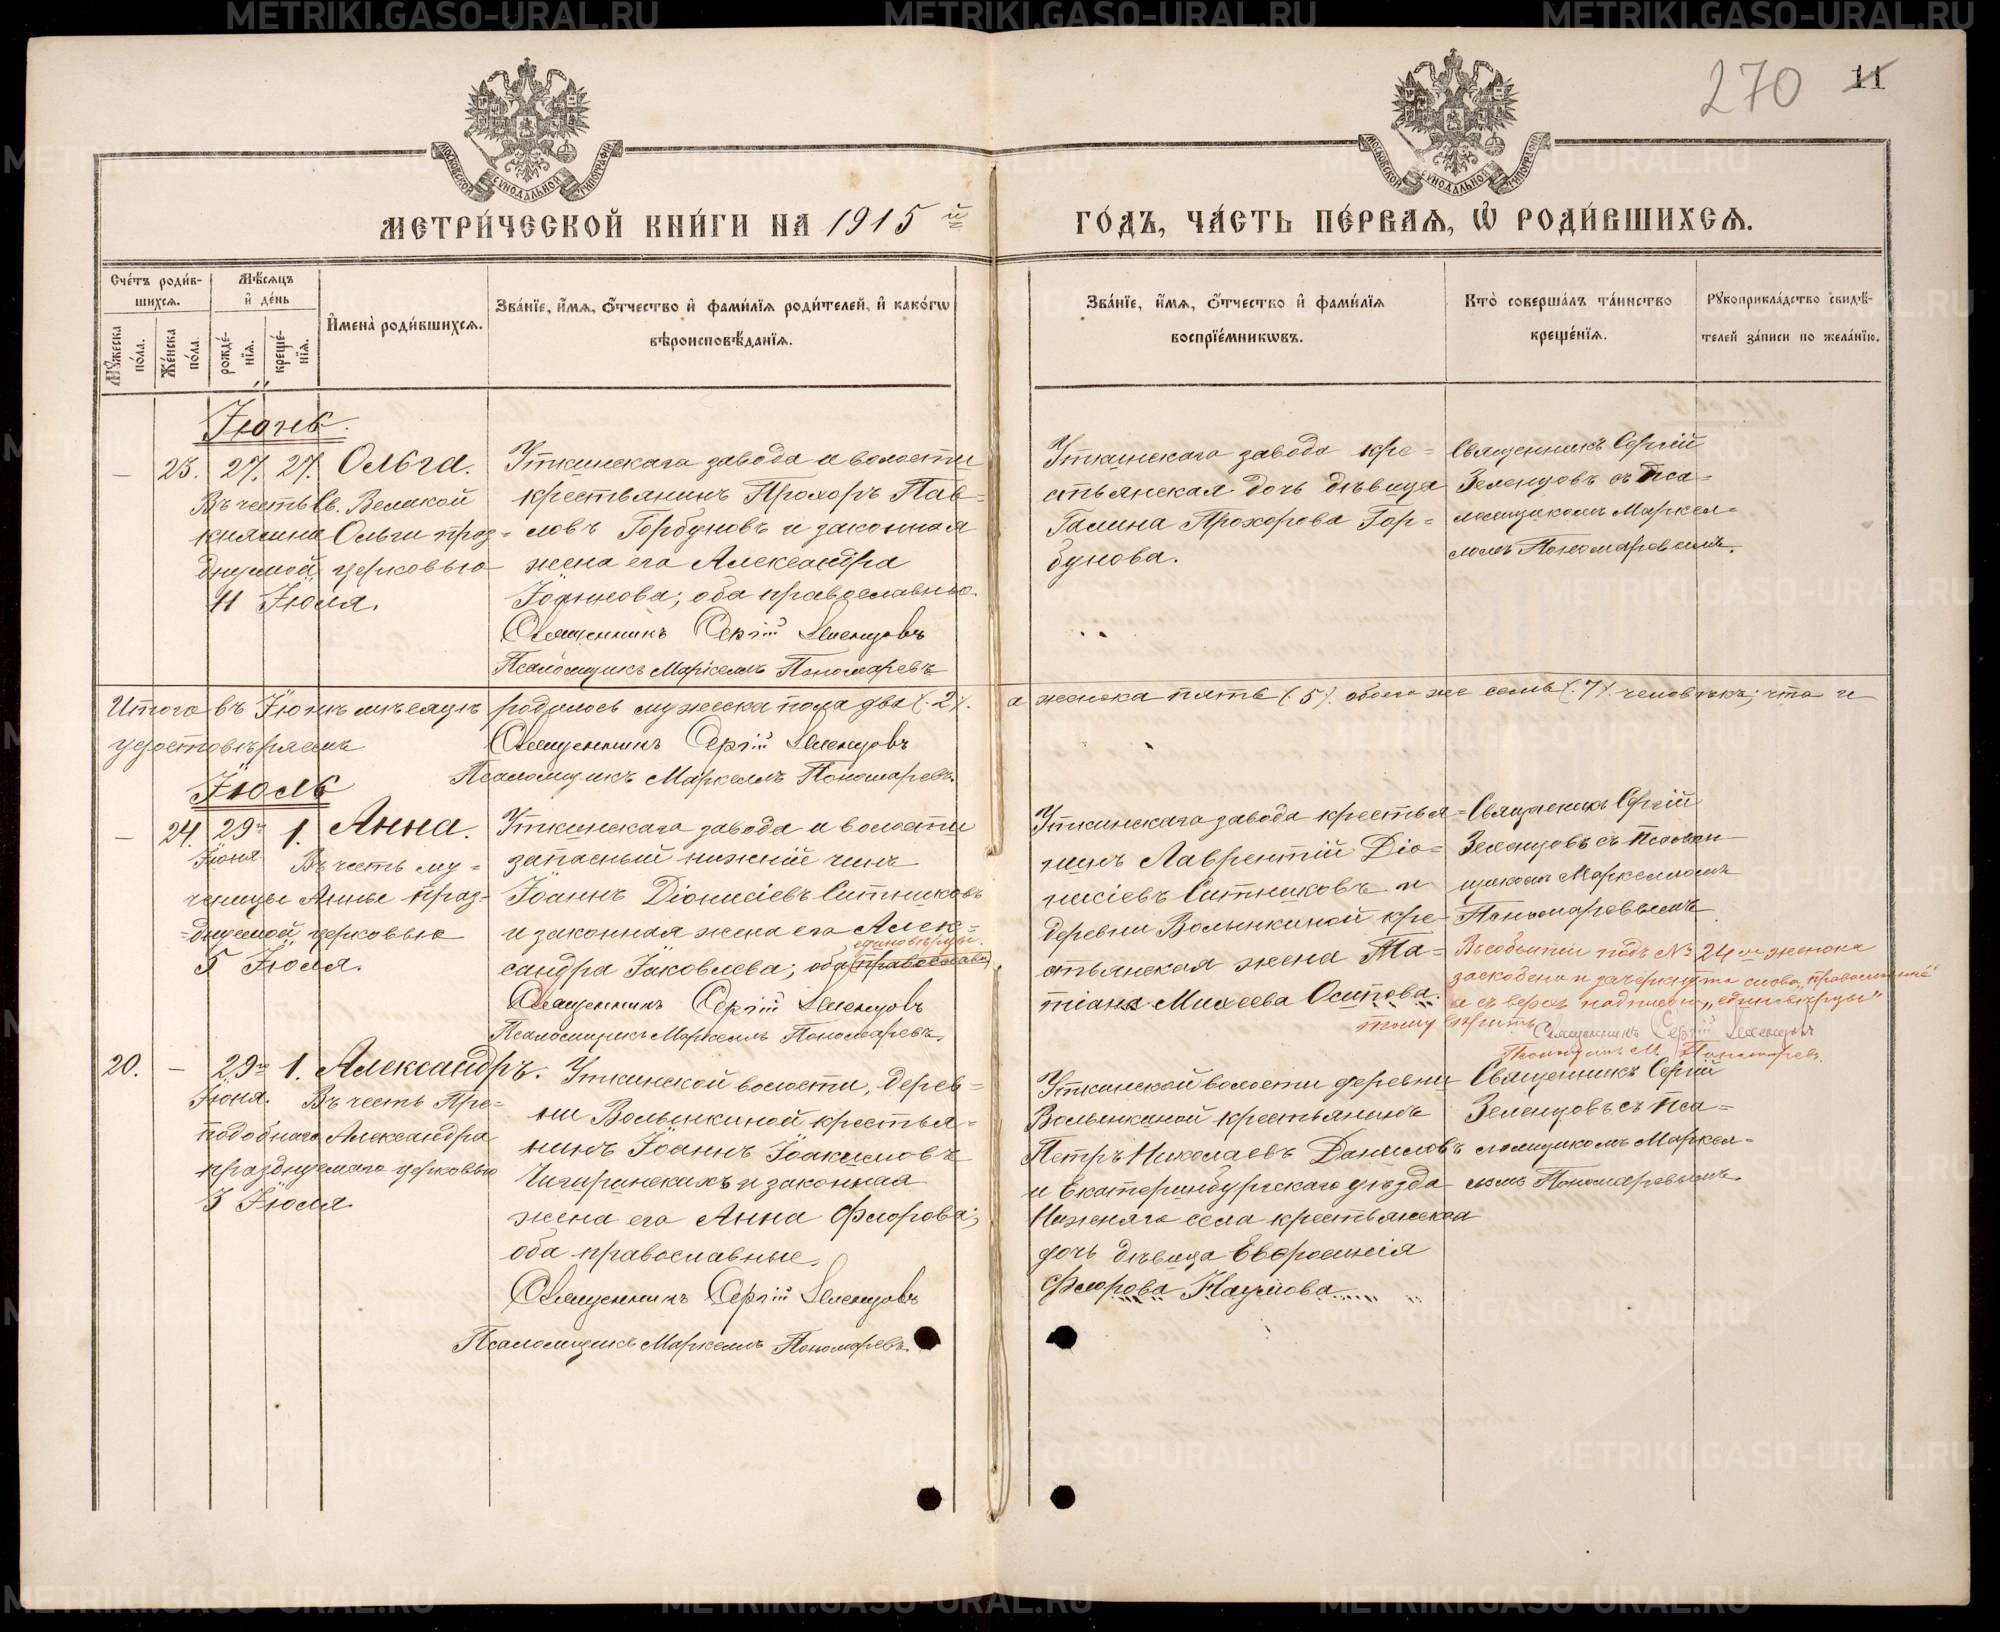 270 11
МОСКОВСКОЙ СѴНОДАЛЬНОЙ ТИПОГРАФІИ
МОСКОВСКОЙ СѴНОДАЛЬНОЙ ТИПОГРАФІИ
МЕТРИ́ЧЕСКОЙ КНИ́ГИ НА 1915 й
ГО́ДЪ, ЧА́СТЬ ПЕ́РВАѦ, Ѡ҆ РОДИ́ВШИХСѦ.
Сче́тъ роди́в-
шихсѧ.
Мꙋ́жеска по́ла.
Же́нска по́ла.
Мѣ́сѧцъ
и҆ де́нь
рожде́-
нїѧ.
креще́-
нїѧ.
И҆мена̀ роди́вшихсѧ.
Зва́нїе, и҆́мѧ, ѻ҆́тчество и҆ фами́лїѧ роди́телей, и҆ како́гѡ
вѣроисповѣ́данїѧ.
Зва́нїе, и҆́мѧ, ѻ҆́тчество и҆ фами́лїѧ
воспрїе́мникѡвъ.
Кто̀ соверша́лъ та́инство
креще́нїѧ.
Рꙋкоприкла́дство свидѣ́-
телей за́писи по жела́нїю.
Іюнь.
— 23. 27. 27. Ольга.
Въ честь Св. Великой
княгини Ольги праз-
днуемой церковью
11 Іюля.
Уткинскаго завода и волости
крестьянинъ Прохоръ Пав-
ловъ Горбуновъ и законная
жена его Александра
Іоаннова; оба православные.
Священникъ Сергій Зеленцовъ
Псаломщикъ Маркеллъ Пономаревъ
Уткинскаго завода кре-
стьянская дочь дѣвица
Галина Прохорова Гор-
бунова.
Священникъ Сергій
Зеленцовъ съ Пса-
ломщикомъ Маркел-
ломъ Пономаревымъ.
Итого въ Іюнѣ мѣсяцѣ родилось мужеска пола два (.2.). а женска пять (.5.) обоего же семь (.7.) человѣкъ; что и
удостовѣряемъ
Священникъ Сергій Зеленцовъ
Псаломщикъ Маркеллъ Пономаревъ.
Іюль
— 24. 29го 1. Анна.
Іюня Въ честь му-
ченицы Анны праз-
днуемой церковью
5 Іюля.
Уткинскаго завода и волости
запасный нижній чинъ
Іоаннъ Діонисіевъ Ситниковъ
и законная жена его Алек-
единовѣрцы.
сандра Іаковлева; оба (православны)
Священникъ Сергій Зеленцовъ
Псаломщикъ Маркеллъ Пономаревъ.
Уткинскаго завода крестья-
нинъ Лаврентій Діо-
нисіевъ Ситниковъ и
деревни Волынкиной кре-
стьянская жена Та-
тіана Михеева Осипова.
Священникъ Сергій
Зеленцовъ съ Псалом-
щикомъ Маркелломъ
Пономаревымъ
Въ событіи подъ № 24 м женска
заскобено и зачеркнуто слово „православные“
и съ верху надписано „единовѣрцы“
тому вѣрить Священникъ Сергій Зеленцовъ
Псаломщикъ М. Пономаревъ.
20. — 29го 1. Александръ.
Іюня. Въ честь Пре-
подобнаго Александра
празднуемаго церковью
3 Іюля.
Уткинской волости, дерев-
ни Волынкиной крестья-
нинъ Іоаннъ Іоакимовъ
Чигиринскихъ и законная
жена его Анна Флорова;
оба православные.
Священникъ Сергій Зеленцовъ
Псаломщикъ Маркеллъ Пономаревъ.
Уткинской волости деревни
Волынкиной крестьянинъ
Петръ Николаевъ Даниловъ
и Екатеринбургскаго уѣзда
Нижняго села крестьянская
дочь дѣвица Евфросинія
Флорова Наумова
Священникъ Сергій
Зеленцовъ съ Пса-
ломщикомъ Маркел-
ломъ Пономаревымъ.